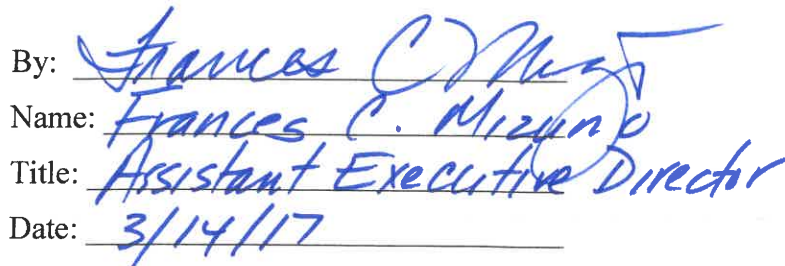 By: Frances C Mizuno
Name: Frances C. Mizuno
Title: Assistant Executive Director
Date: 3/14/17